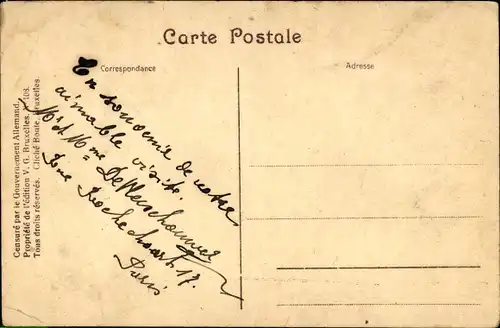 Carte Postale
Correspondance
Adresse
En souvenir de votre
aimable visite.
Mr et Mme De
Rue Rochechouart 17
Paris
Censuré par le Gouvernement Allemand.
Propriété de l'édition V. G. Bruxelles. - 108.
Tous droits réservés. Cliché Boute, Bruxelles.